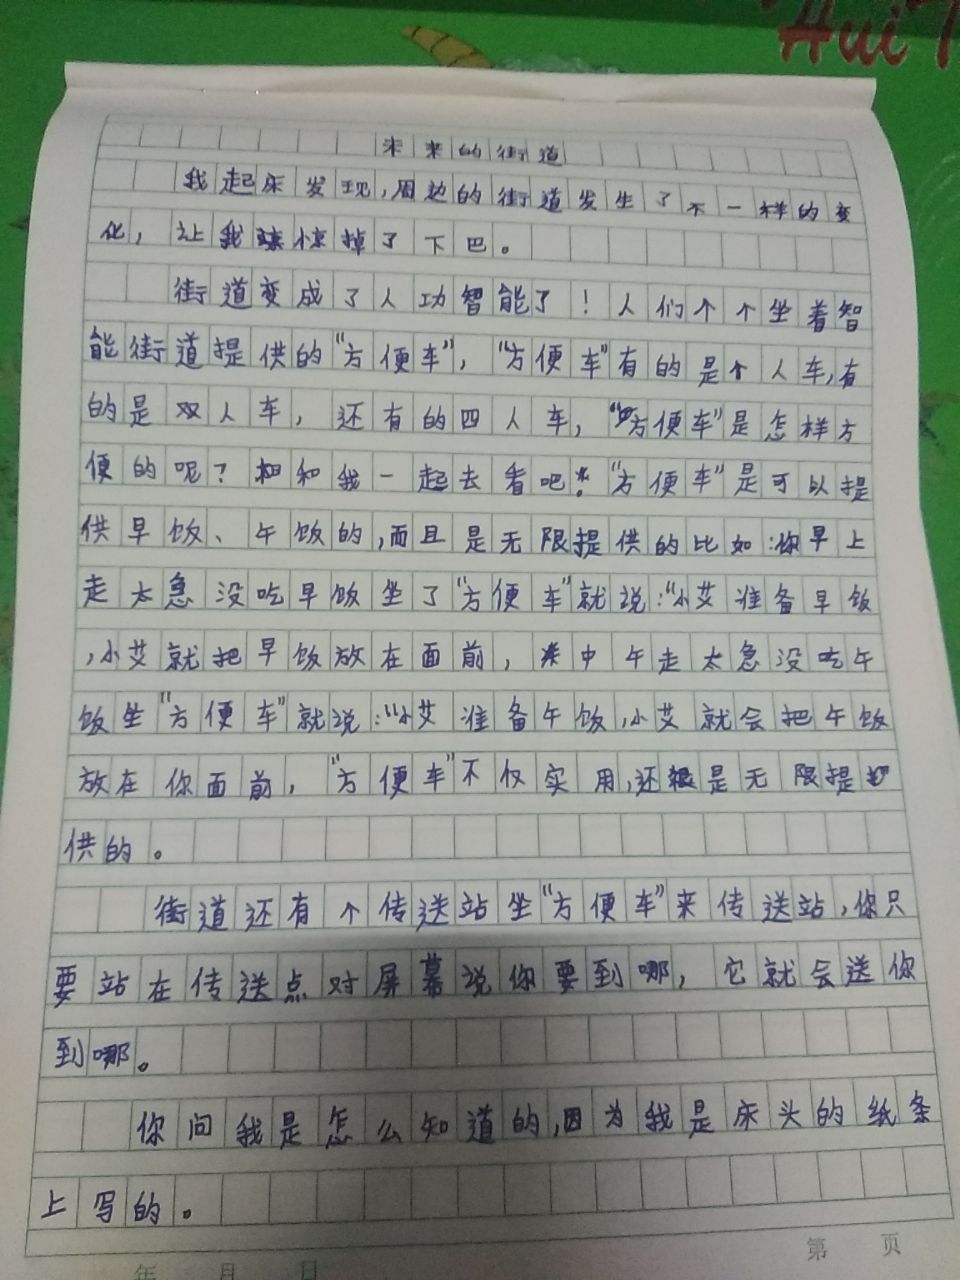 Hui T
未来的街道
我起床发现,周边的街道发生了不一样的变
化,让我惊掉了下巴。
街道变成了人功智能了!人们个个坐着智
能街道提供的“方便车”,“方便车”有的是个人车,有
的是双人车,还有的四人车,“方便车”是怎样方
便的呢?和我一起去看吧!“方便车”是可以提
供早饭、午饭的,而且是无限提供的比如:你早上
走太急没吃早饭坐了“方便车”就说:“小艾准备早饭
,小艾就把早饭放在面前,中午走太急没吃午
饭坐“方便车”就说:“小艾准备午饭,小艾就会把午饭
放在你面前,“方便车”不仅实用,还是无限提
供的。
街道还有个传送站坐“方便车”来传送站,你只
要站在传送点对屏幕说你要到哪,它就会送你
到哪。
你问我是怎么知道的,因为我是床头的纸条
上写的。
第 页
年 月 日